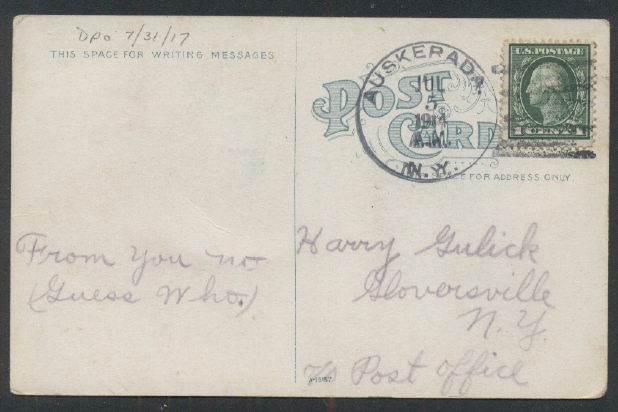 DPO 7/31/17
THIS SPACE FOR WRITING MESSAGES
POST
CARD
AUSKERADA.
JUL
5
1914
A.M.
N.Y.
U.S. POSTAGE
1 CENT 1
CE FOR ADDRESS ONLY
From You no
(Guess Who.)
Harry Gulick
Gloversville
N.Y.
c/o Post Office